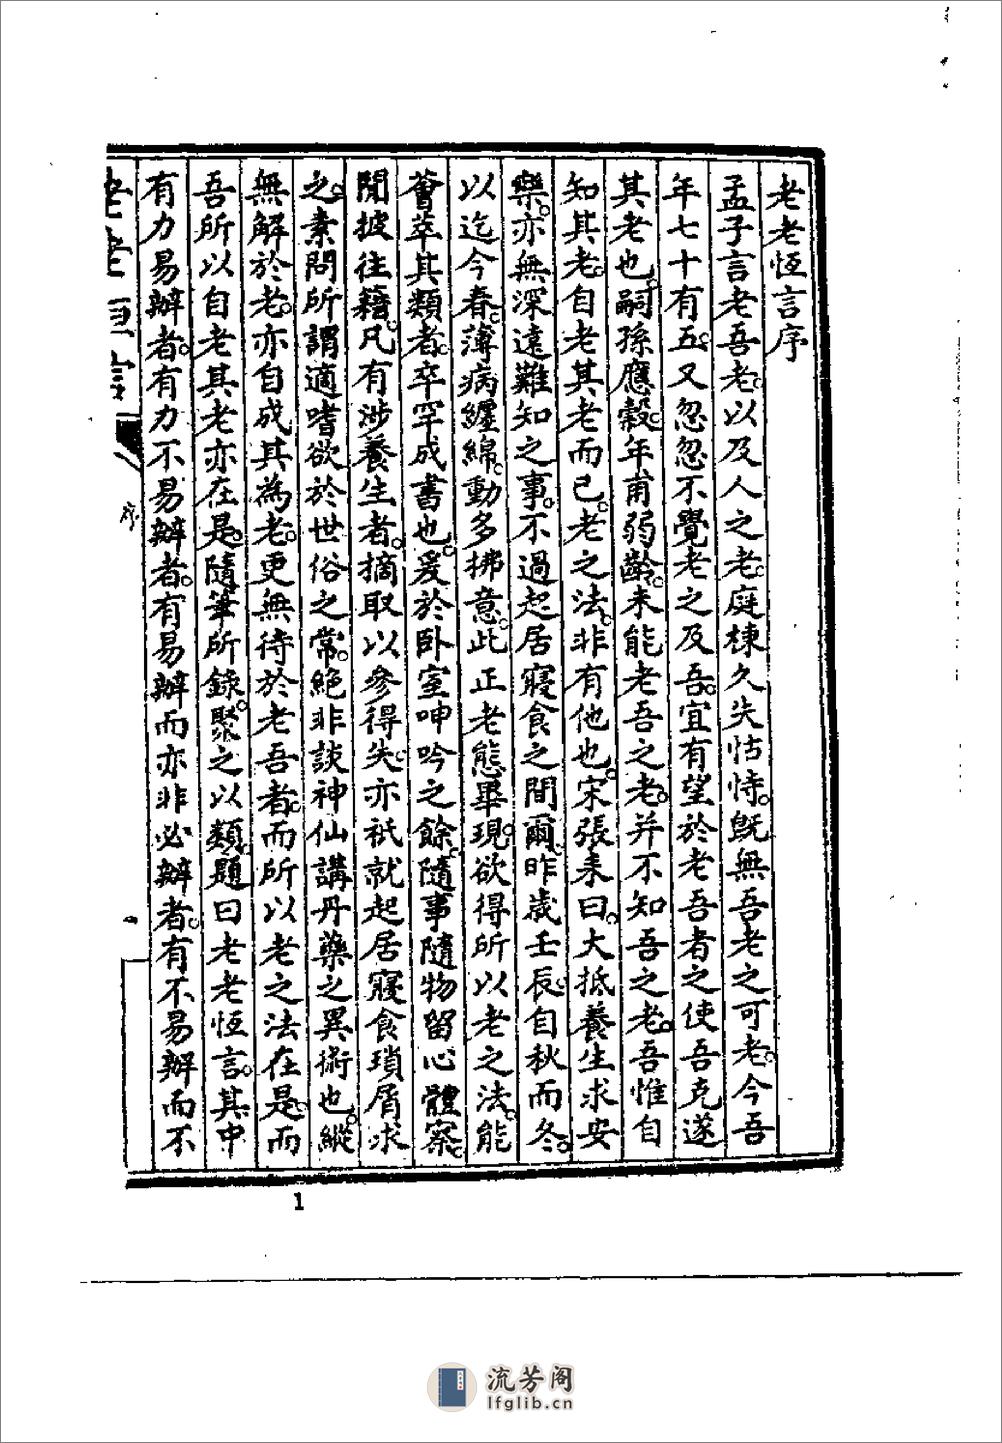 老老恆言序
孟子言老吾老。以及人之老。庭棟久失怙恃。旣無吾老之可老。今吾
年七十有五。又忽忽不覺老之及吾。宜有望於老吾者之使吾克遂
其老也。嗣孫應穀。年甫弱齡。未能老吾之老。并不知吾之老。吾惟自
知其老。自老其老而已。老之法。非有他也。宋張耒曰。大抵養生求安
樂。亦無深遠難知之事。不過起居寢食之間爾。昨歲壬辰。自秋而冬。
以迄今春。薄病纏綿。動多拂意。此正老態畢現。欲得所以老之法。能
薈萃其類者。卒罕成書也。爰於臥室呻吟之餘。隨事隨物留心體察。
閒披往籍。凡有涉養生者。摘取以參得失。亦祇就起居寢食瑣屑求
之。素問所謂適嗜欲於世俗之常。絕非談神仙講丹藥之異術也。縱
無解於老。亦自成其為老。更無待於老吾者。而所以老之法在是。而
吾所以自老其老亦在是。隨筆所錄。聚之以類。題曰老老恆言。其中
有力易辦者。有力不易辦者。有易辦而亦非必辦者。有不易辦而不
老老恆言
序
1
流芳阁
lfglib.cn